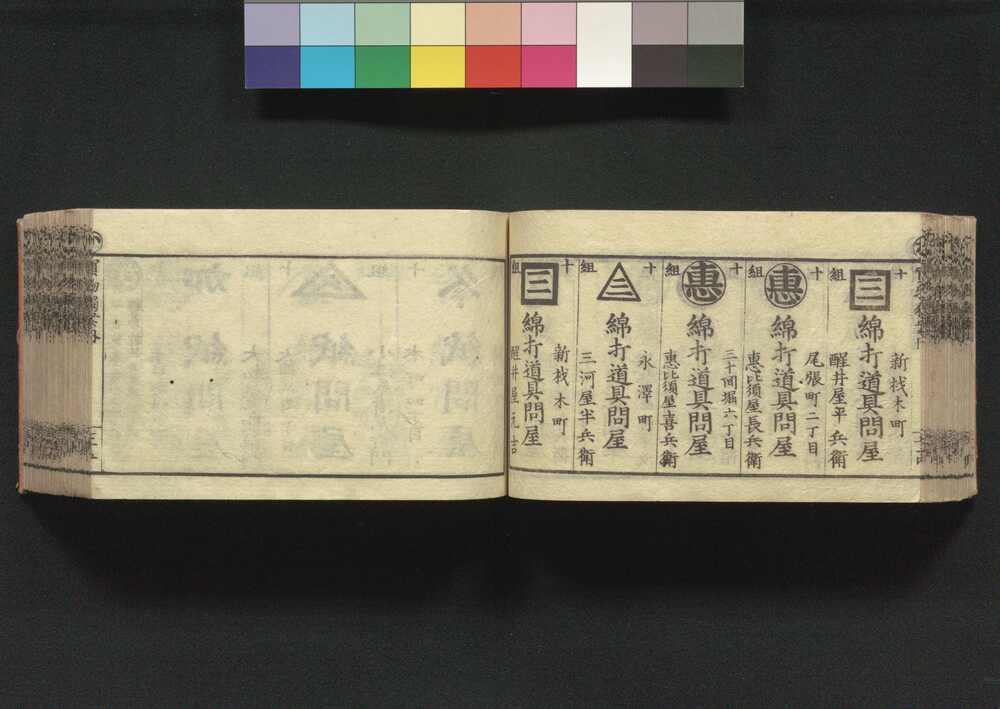 十
組
三
新材木町
綿打道具問屋
醒井屋平兵衛
十
組
惠
尾張町二丁目
綿打道具問屋
惠比須屋長兵衛
十
組
惠
三十間堀六丁目
綿打道具問屋
惠比須屋喜兵衛
十
組
三
永澤町
綿打道具問屋
三河屋半兵衛
十
組
三
新材木町
綿打道具問屋
醒井屋元吉